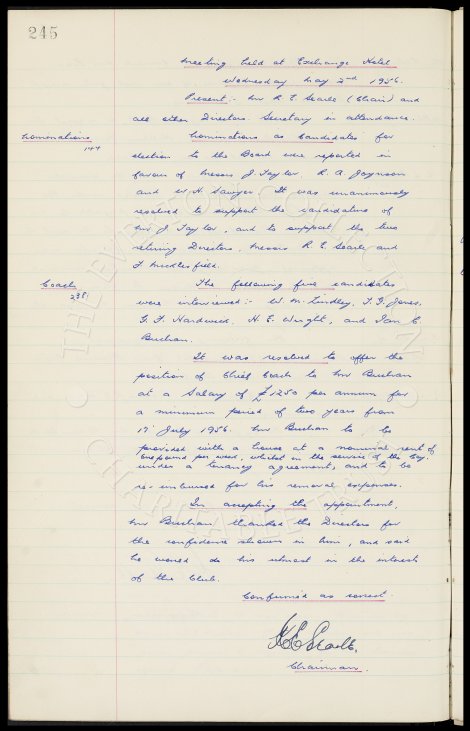 245
Meeting held at Exchange Hotel
Wednesday May 2nd 1956.
Present :- Mr R. E. Searle (Chair) and
all other Directors. Secretary in attendance.
Nominations
144
Nominations as Candidates for
election to the Board were reported in
favour of Messrs J Taylor. R. A. Joynson
and W. H. Sawyer. It was unanimously
resolved to support the candidature of
Mr J Taylor, and to support the two
retiring Directors, Messrs R. E. Searle and
F. Micklesfield.
Coach
238
The following five candidates
were interviewed :- W. M. Lindley, T. G. Jones,
G. F. Hardwick, H. E. Wright, and Ian C
Buchan.
It was resolved to offer the
position of Chief Coach to Mr Buchan
at a Salary of £1250 per annum for
a minimum period of two years from
17 July 1956. Mr Buchan to be
provided with a house at a nominal rent of
one pound per week, whilst in the service of the Coy.
under a tenancy agreement, and to be
re-imbursed for his removal expenses.
In accepting the appointment,
Mr Buchan thanked the Directors for
the confidence shown in him, and said
he would do his utmost in the interests
of the Club.
Confirmed as correct.
R E Searle.
Chairman.
THE EVERTON COLLECTION
CHARITABLE TRUST